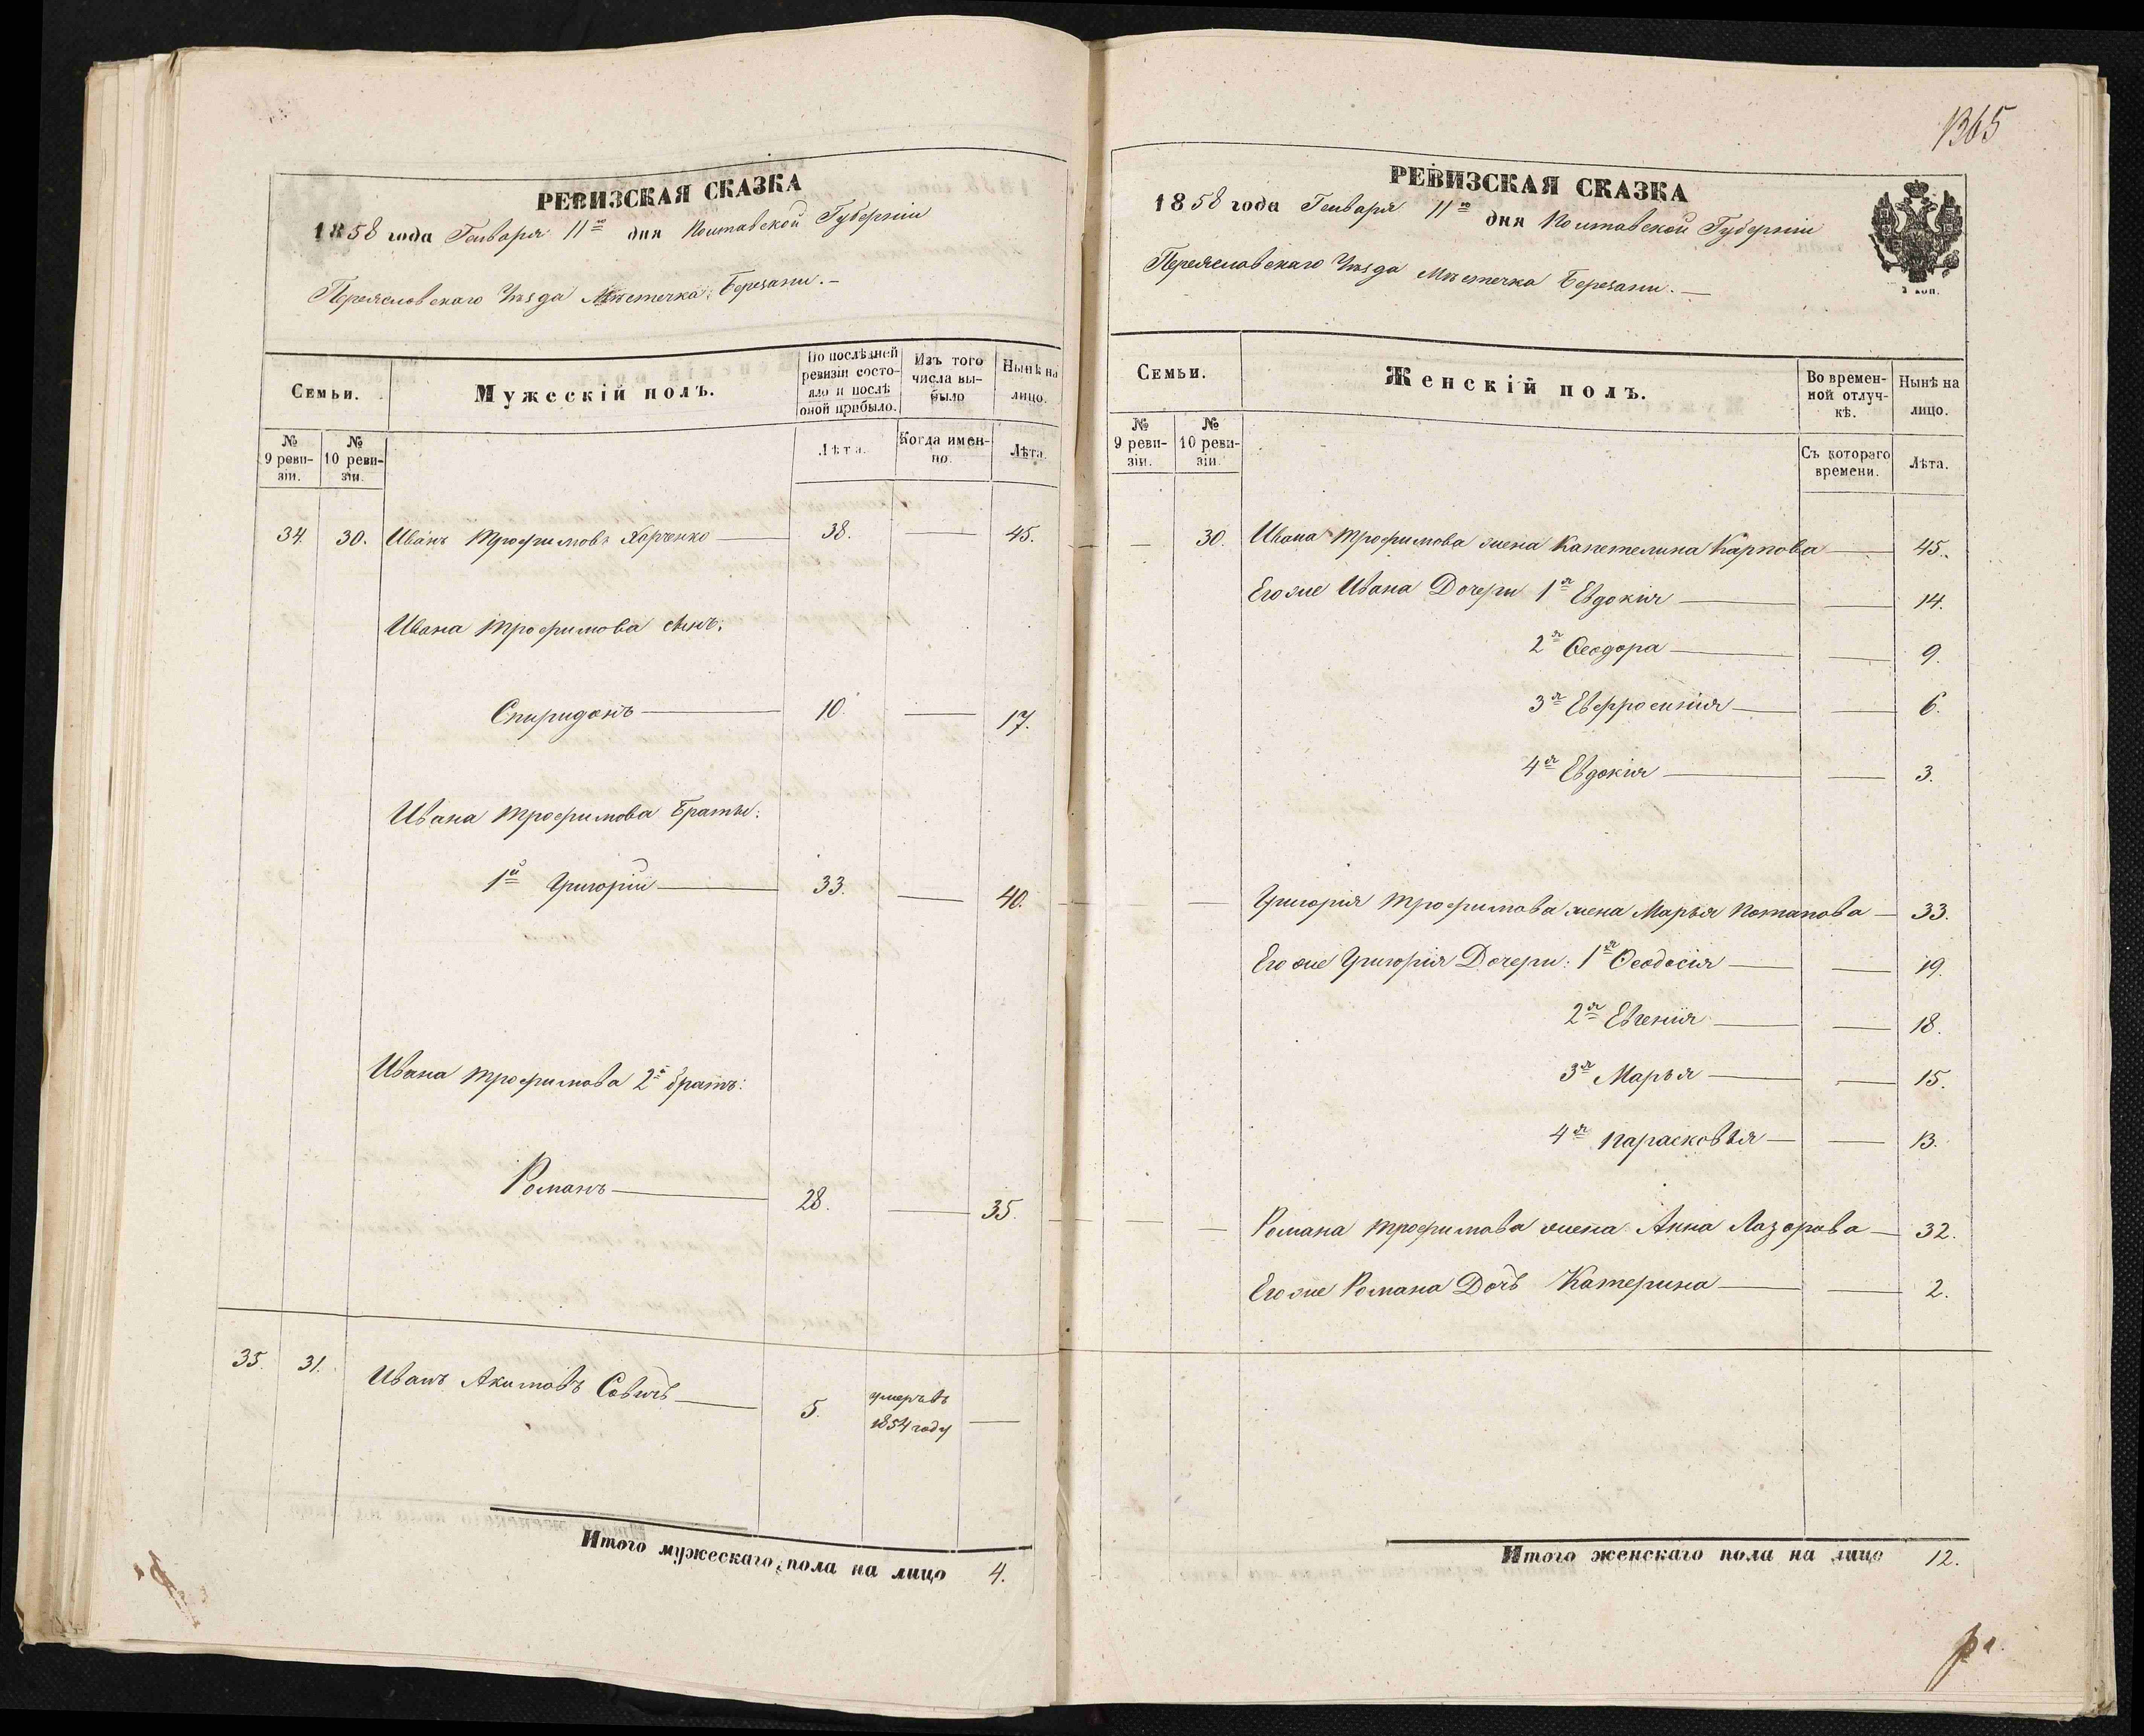 РЕВИЗСКАЯ СКАЗКА
1858 года Генваря 11го дня Полтавской Губерніи
Переяславскаго Уѣзда Мѣстечка Березани.
Семьи.
Мужескій полъ.
По послѣдней ревизіи состояло и послѣ оной прибыло.
Изъ того числа выбыло
Нынѣ на лицо.
№ 9 ревизіи.
№ 10 ревизіи.
Лѣта.
Когда именно.
Лѣта.
34. 30. Иванъ Трофимовъ Харченко — 38. — 45.
Ивана Трофимова сынъ:
Спиридонъ — 10. — 17.
Ивана Трофимова Братья:
1й Григорій — 33. — 40.
Ивана Трофимова 2й братъ:
Романъ — 28. — 35.
35. 31. Иванъ Акимовъ — 5. умеръ въ 1854 году —
Итого мужескаго пола на лицо 4.
1365
РЕВИЗСКАЯ СКАЗКА
1858 года Генваря 11го дня Полтавской Губерніи
Переяславскаго Уѣзда Мѣстечка Березани.
Семьи.
Женскій полъ.
Во временной отлучкѣ.
Нынѣ на лицо.
№ 9 ревизіи.
№ 10 ревизіи.
Съ котораго времени.
Лѣта.
— 30. Ивана Трофимова жена Капетелина Карпова — 45.
Его же Ивана Дочери 1я Евдокія — — 14.
2я Ѳеодора — — 9.
3я Евфросинія — — 6.
4я Евдокія — — 3.
— Григорія Трофимова жена Марья Потапова — 33.
Его же Григорія Дочери: 1я Ѳеодосія — — 19.
2я Евгенія — — 18.
3я Марья — — 15.
4я Парасковья — — 13.
— — Романа Трофимова жена Анна Лазарова — 32.
Его же Романа Дочь Катерина — — 2.
Итого женскаго пола на лицо 12.